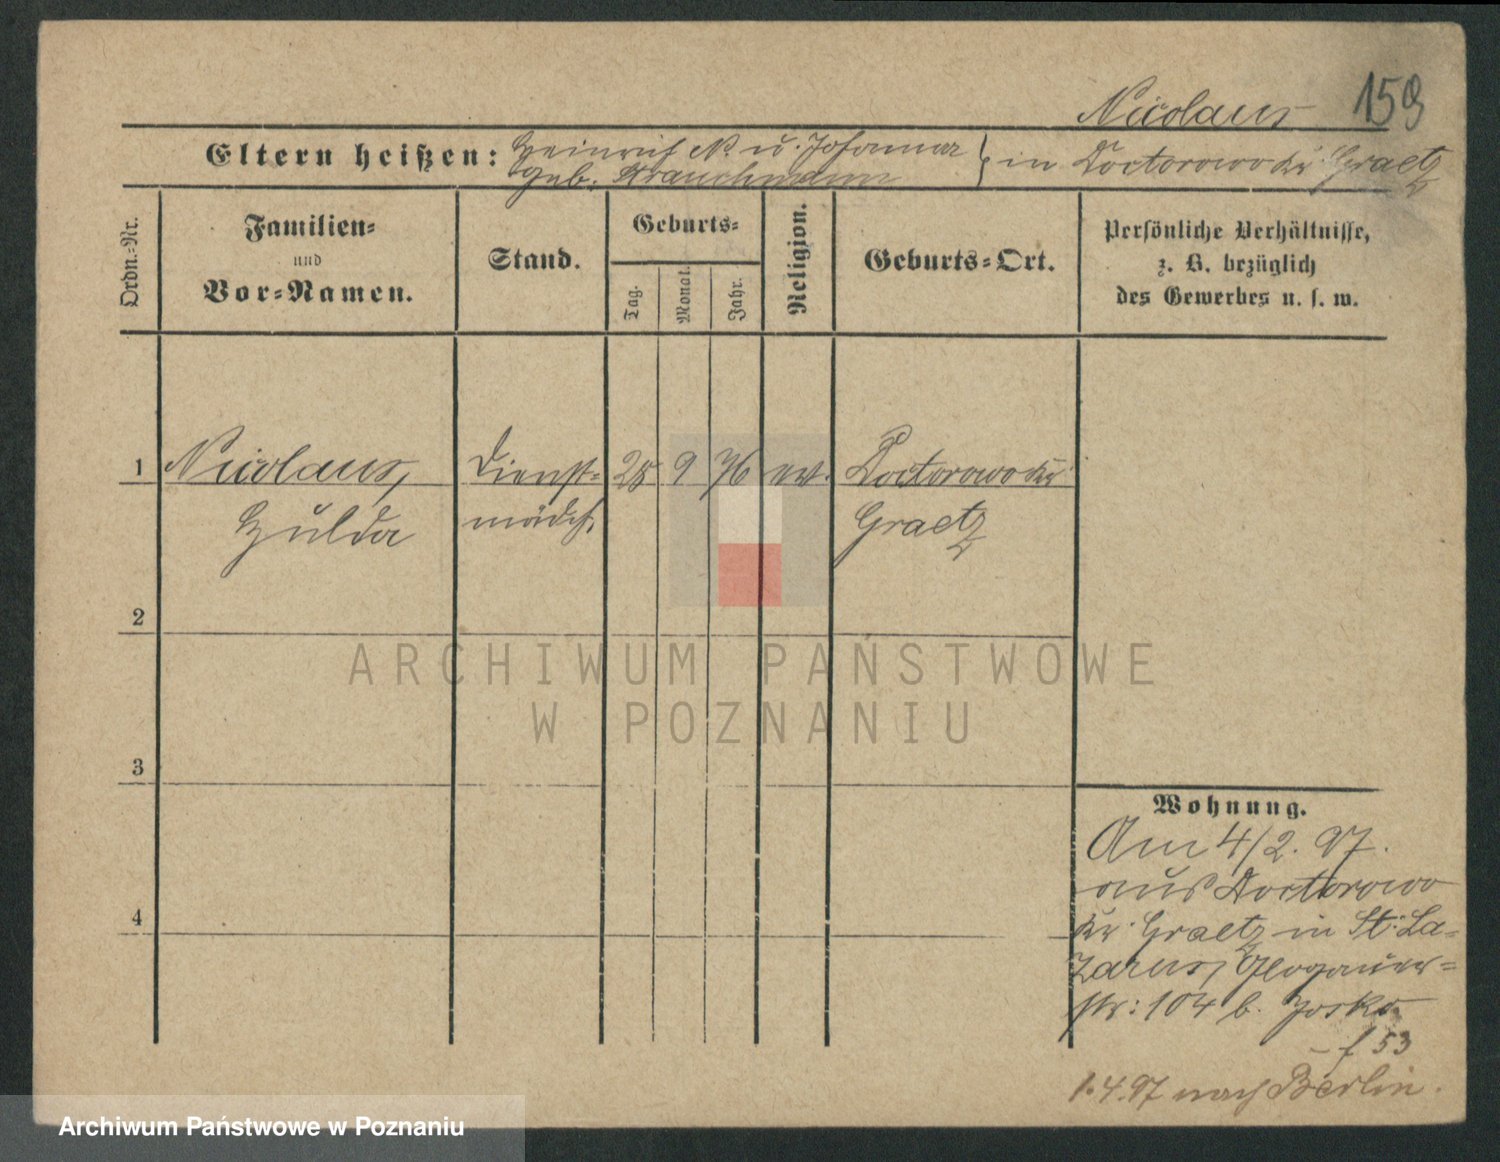 Nicolaus 159
Eltern heißen: Heinrich N. u. Johanna } in Doctorowo Kr. Graetz
geb. Strauchmann
Ordn.-Nr.
Familien-
und
Vor-Namen.
Stand.
Geburts-
Tag.
Monat.
Jahr.
Religion.
Geburts-Ort.
Persönliche Verhältnisse,
z. B. bezüglich
des Gewerbes u. s. w.
1 Nicolaus, Dienst- 25 9 76 ev. Doctorowo Kr.
Hulda mädch. Graetz
2
3
4
ARCHIWUM PAŃSTWOWE
W POZNANIU
Wohnung.
Am 4/2. 97.
aus Doctorowo
Kr. Graetz in St. La-
zarus, Glogauer-
str: 104 b. Joske
f 53
1.4.97 nach Berlin.
Archiwum Państwowe w Poznaniu